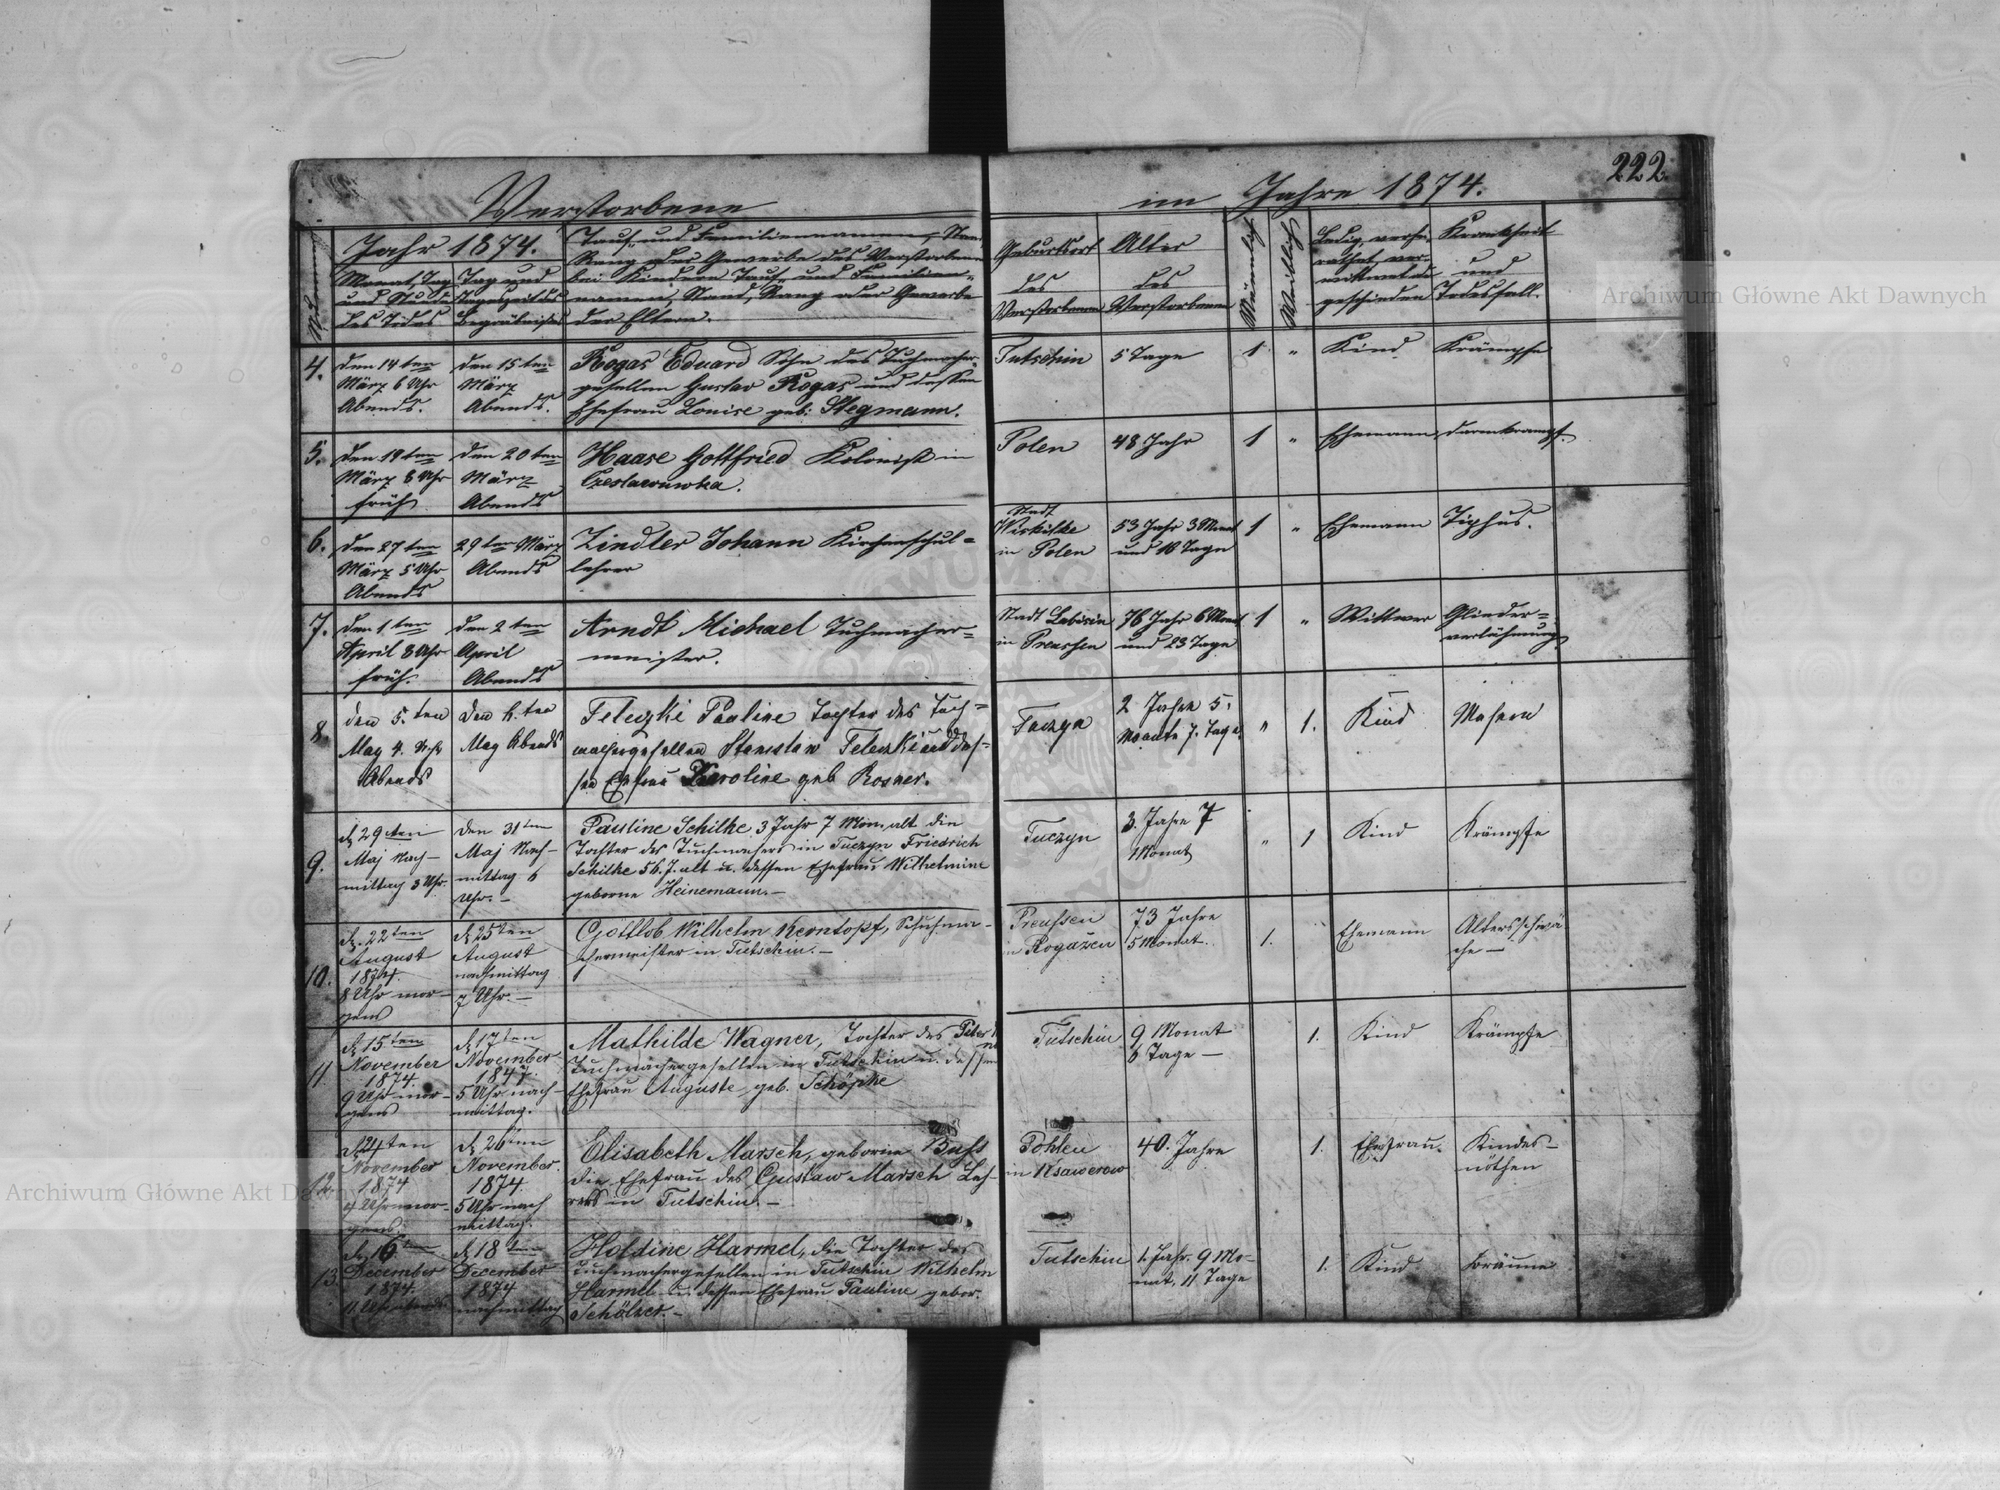 222.
Verstorbene im Jahre 1874.
Jahr 1874.
Monat, Tag und Stunde des Todes
Tag und Tageszeit des Begräbnißes
Tauf- und Familiennamen, Stand
Rang oder Gewerbe des Verstorbenen
bei Kindern Tauf- und Familien-
namen, Stand, Rang oder Gewerbe
der Eltern.
Geburtsort des Verstorbenen
Alter des Verstorbenen
Männlich
Weiblich
Ledig, verhei-
rathet, ver-
wittwet od.
geschieden
Krankheit und Todesfall.
4.
den 14ten
März 6 Uhr
Abends.
den 15ten
März
Abends.
Rogas Eduard Sohn des Tuchmacher-
gesellen Gustav Rogas und dessen
Ehefrau Louise geb: Stegmann.
Tutschin
5 Tage
1
"
Kind
Krämpfe
5.
den 19ten
März 8 Uhr
früh
den 20ten
März
Abends
Haase Gottfried Kolonist in
Polen
48 Jahr
1
"
Ehemann
darmkrampf.
6.
den 27ten
März 5 Uhr
Abends
29ten März
Abends
Zindler Johann Kirchenschul=
lehrer
Stadt
in Polen
53 Jahr 3 Monat
und 18 Tage
1
"
Ehemann
Tiphus.
7.
den 1.ten
April 8 Uhr
früh.
den 2ten
April
Abends
Arndt Michael Tuchmacher=
meister.
Stadt Labisin
in Preussen
76 Jahr 6 Monat
und 23 Tage
1
"
Wittwer
Glieder=
verlähmung
8.
den 5.ten
May 4. Uhr
Abends
den 6.ten
May Abends
Feleszki Pauline Tochter des Tuch=
machergesellen Stanislaw Feleszki und des=
sen Ehefrau Karoline geb Rosner.
Tuczyn
2 Jahre 5.
Monate 7. Tage.
"
1.
Kind
Masern
9.
d. 29ten
Maj Nach-
mittag 3 Uhr.
den 31ten
Maj Nach-
mittag 6
Uhr. –
Pauline Schilke 3 Jahr 7 Mon. alt die
Tochter des Tuchmachers in Tuczyn Friedrich
Schilke 56. J. alt u. dessen Ehefrau Wilhelmine
geborne Heinemann. –
Tuczyn
3. Jahre 7
Monat
"
1
Kind
Krämpfe
10.
d. 22ten
August
1874.
8 Uhr mor-
gens
d. 25ten
August
nachmittag
7 Uhr. –
Gottlob Wilhelm Kerntopf, Schuhma-
chermeister in Tutschin. –
Preußen
in Rogazen
73 Jahre
5 Monat.
1.
Ehemann
Altersschwä-
che –
11.
d. 15ten
November
1874.
9 Uhr mor-
gens
d. 17ten
November
1847.
5 Uhr nach-
mittag.
Mathilde Wagner, Tochter des Peter
Tuchmachergesellen in Tutschin u. dessen
Ehefrau Auguste geb. Schöpke
Tutschin
9 Monat
6 Tage –
1.
Kind
Krämpfe
12.
d. 24ten
November
1874
4 Uhr mor-
gens.
d. 26ten
November.
1874.
5 Uhr nach
mittag.
Elisabeth Marsch, geborne Buss
die Ehefrau des Gustaw Marsch Leh-
rers in Tutschin. –
Pohlen
40. Jahre
1.
Ehefrau.
Kindes-
nöthen
13.
d. 16ten
December
1874.
d. 18ten
December
1874
nachmittag
Holdine Harmel, die Tochter des
Tuchmachergesellen in Tutschin Wilhelm
Harmel u. dessen Ehefrau Pauline gebor.
Schölzer. –
Tutschin
1. Jahr. 9 Mo-
nat, 11 Tage
1.
Kind
Bräune
Archiwum Główne Akt Dawnych
Archiwum Główne Akt Dawnych